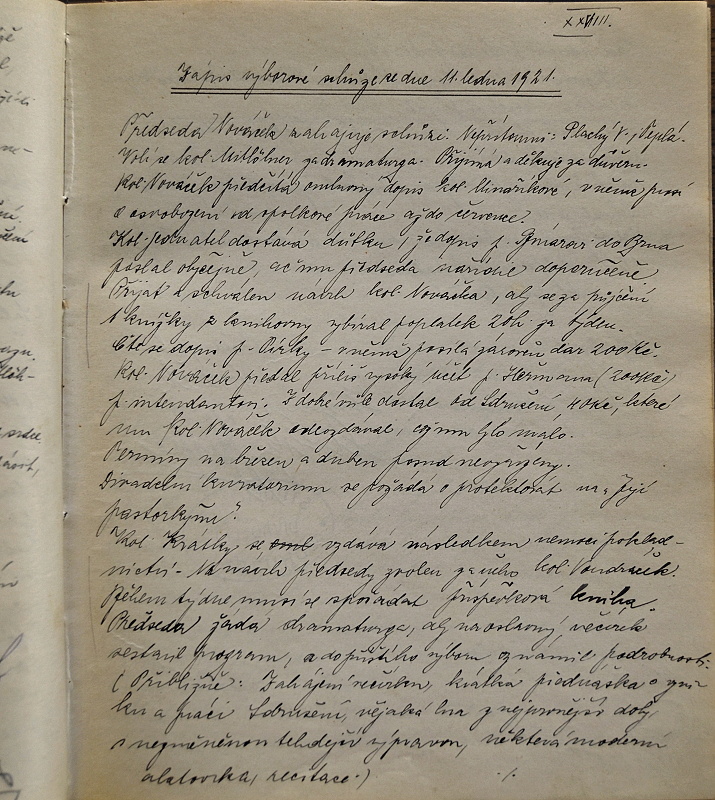 XXVIII.
Zápis výborové schůze ze dne 11. ledna 1921.
Předseda Nováček zahajuje schůzi. Nepřítomni: Plachý V., Teplá.
Volí se kol. Mittölner za dramaturga. Přijímá a děkuje za důvěru.
Kol. Nováček předčítá omluvný dopis kol. Minaříkové, v němž prosí
o osvobození od spolkové práce až do července.
Kol. jednatel dostává důtku, že dopis p. do Brna
poslal obyčejně, ač mu předseda nařídil doporučeně
Přijat a schválen návrh kol. Nováčka, aby se za půjčení
1 knížky z knihovny vybíral poplatek 20h za týden.
Čte se dopis p. – v němž posílá zároveň dar 200Kč.
Kol. Nováček předal příliš vysoký účet p. Heřmana (200Kč)
p. intendantovi. Z dobré vůle dostal od Sdružení 40Kč, které
mu kol. Nováček odevzdával, což mu bylo málo.
Termíny na březen a duben posud neopatřeny.
Divadelní kuratorium se požádá o protektorát na „Její
pastorkyni".
Kol. Krátký se vzdává následkem nemoci poklad-
nictví. Na návrh předsedy zvolen za něho kol. Vondráček.
Během týdne musí se spořádat příspěvková kniha.
Předseda žádá dramaturga, aby na oslavný večírek
sestavil program, a do příštího výboru oznámil podrobnosti.
(Přibližně: Zahájení večírku, krátká přednáška o vzni-
ku a práci Sdružení, nějaká hra z nejranější doby
s nezměněnou tehdejší výpravou, některá moderní
aktovka, recitace.) ./.